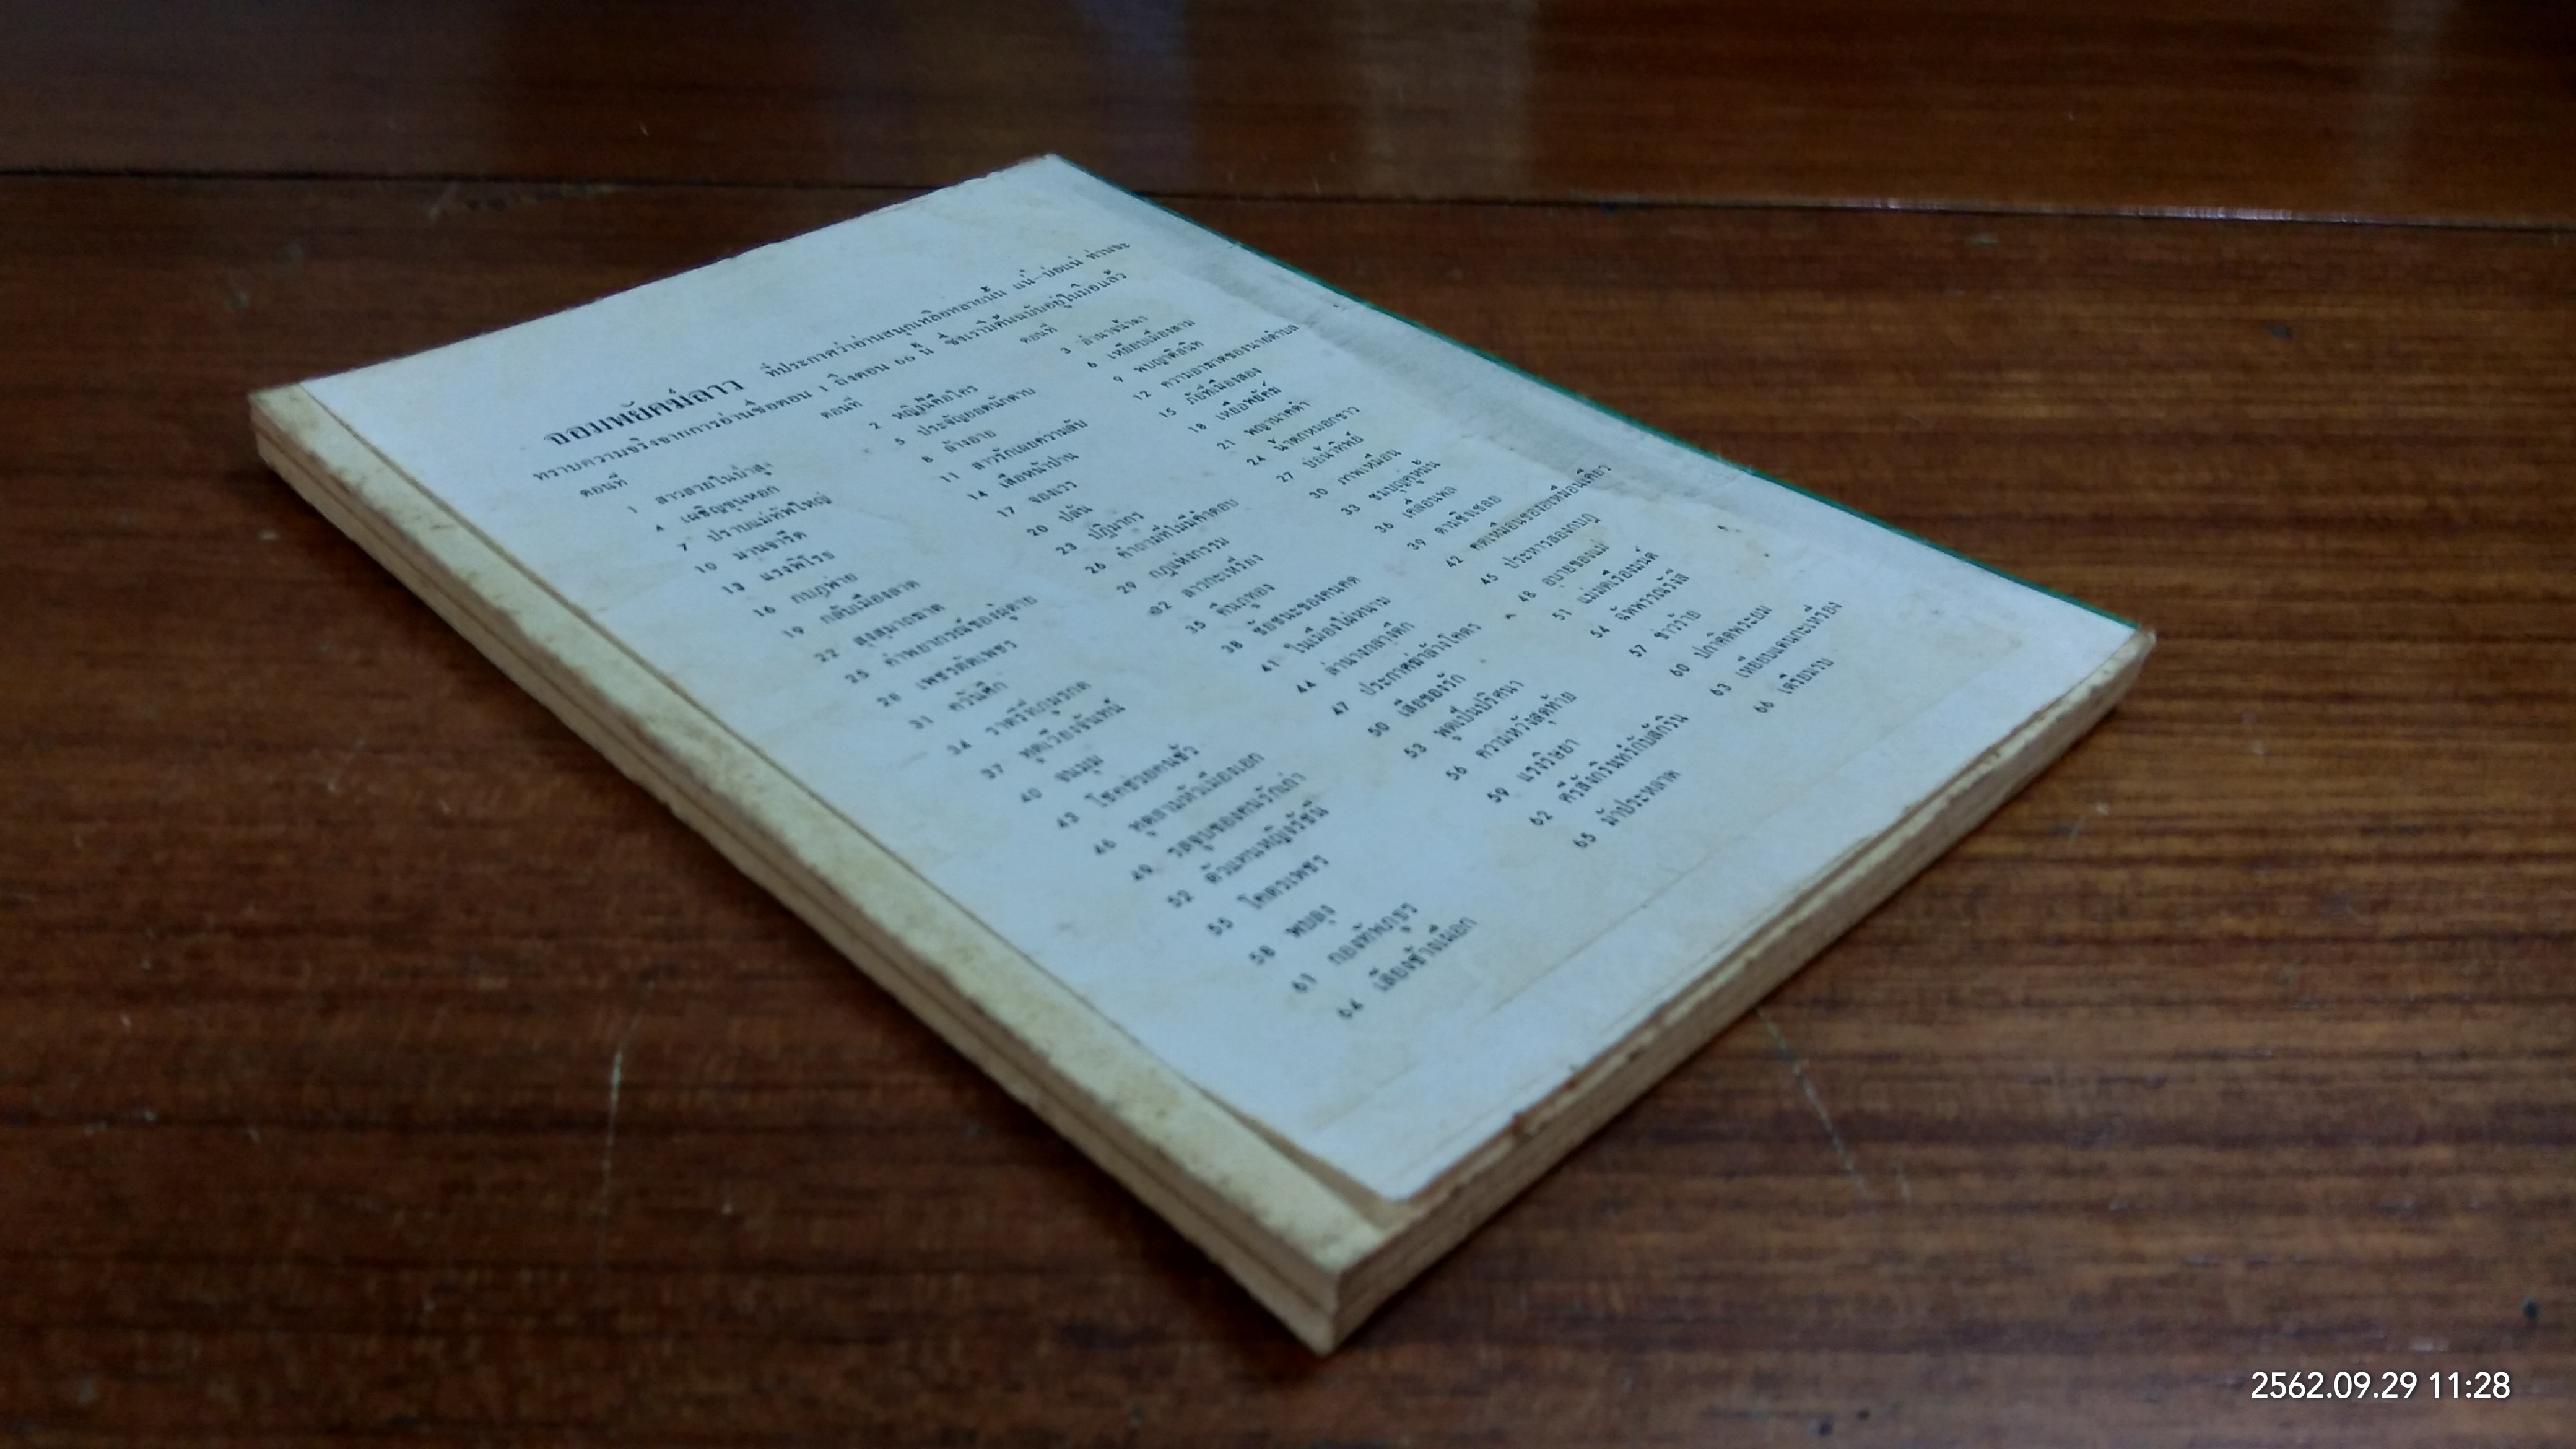 จอมพยัคฆ์ลาว ที่ประกาศว่าอ่านสนุกเหลือหลายนั้น แน่—บ่อแน่ ท่านจะ
ทราบความจริงจากการอ่านชื่อตอน 1 ถึงตอน 66 นี้ ซึ่งเรามีต้นฉบับอยู่ในมือแล้ว
ตอนที่ ตอนที่ ตอนที่
1 สาวสวยในป่าสูง 2 หญิงนี้คือใคร 3 อำนาจน้ำตา
4 เผชิญขุนหอก 5 ประจัญยอดนักดาบ 6 เหยียบเมืองลาม
7 ปราบแม่ทัพใหญ่ 8 ล้างอาย 9 พบญาติสนิท
10 ม่านจารีต 11 สาวรักเผยความลับ 12 ความอาฆาตของนายตำบล
13 แรงพิโรธ 14 เสือหน้าป่าน 15 ภัยที่เมืองสอง
16 กบฏพ่าย 17 จองเวร 18 เหยื่อพยัคฆ์
19 กลับเมืองลาด 20 ปล้น 21 พญานาคดำ
22 สุงสุมาอฆาต 23 ปฏิมากร 24 น้ำตกหมอกขาว
25 คำพยากรณ์ของผู้ตาย 26 คำถามที่ไม่มีคำตอบ 27 บ่อน้ำทิพย์
28 เพชรตัดเพชร 29 กฎแห่งกรรม 30 ภาพเหมือน
31 ควันศึก 32 สาวกะเหรี่ยง 33 ชุมนุมคู่หมั้น
34 ราตรีที่ภูมรกต 35 คืนภูทอง 36 เคลื่อนพล
37 ทูตเวียงจันทน์ 38 ชัยชนะของคนคด 39 ด่านชิงเชลย
40 จนมุม 41 ในเมืองไผ่หนาม 42 คดเหมือนของอเหมือนเคียว
43 โชคช่วยคนชั่ว 44 ลำนางกลางดึก 45 ประหารสองกบฏ
46 ทูตถามหัวเมืองเอก 47 ประกาศฆ่าล้างโคตร 48 อุบายของแม่
49 รสจูบของคนรักเก่า 50 เสียของรัก 51 แม่มดเรืองมนต์
52 ตัวแทนหญิงรัชนี 53 พูดเป็นปริศนา 54 ฉัพพรรณรังสี
55 โคตรเพชร 56 ความหวังสุดท้าย 57 ข่าวร้าย
58 พบลุง 59 แรงริษยา 60 ปกาศิตพระยม
61 กองทัพภูธร 62 ศรีสังกรินทร์กับสักริน 63 เหยียบแดนกะเหรี่ยง
64 เสียงช้างเผือก 65 ม้าประหลาด 66 เตรียมรบ
2562.09.29 11:28